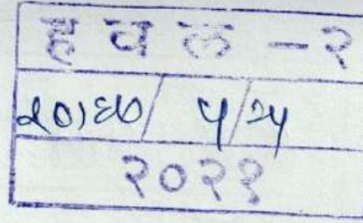 ह व ल - २
२०१६७/ ५/२५
२०२१